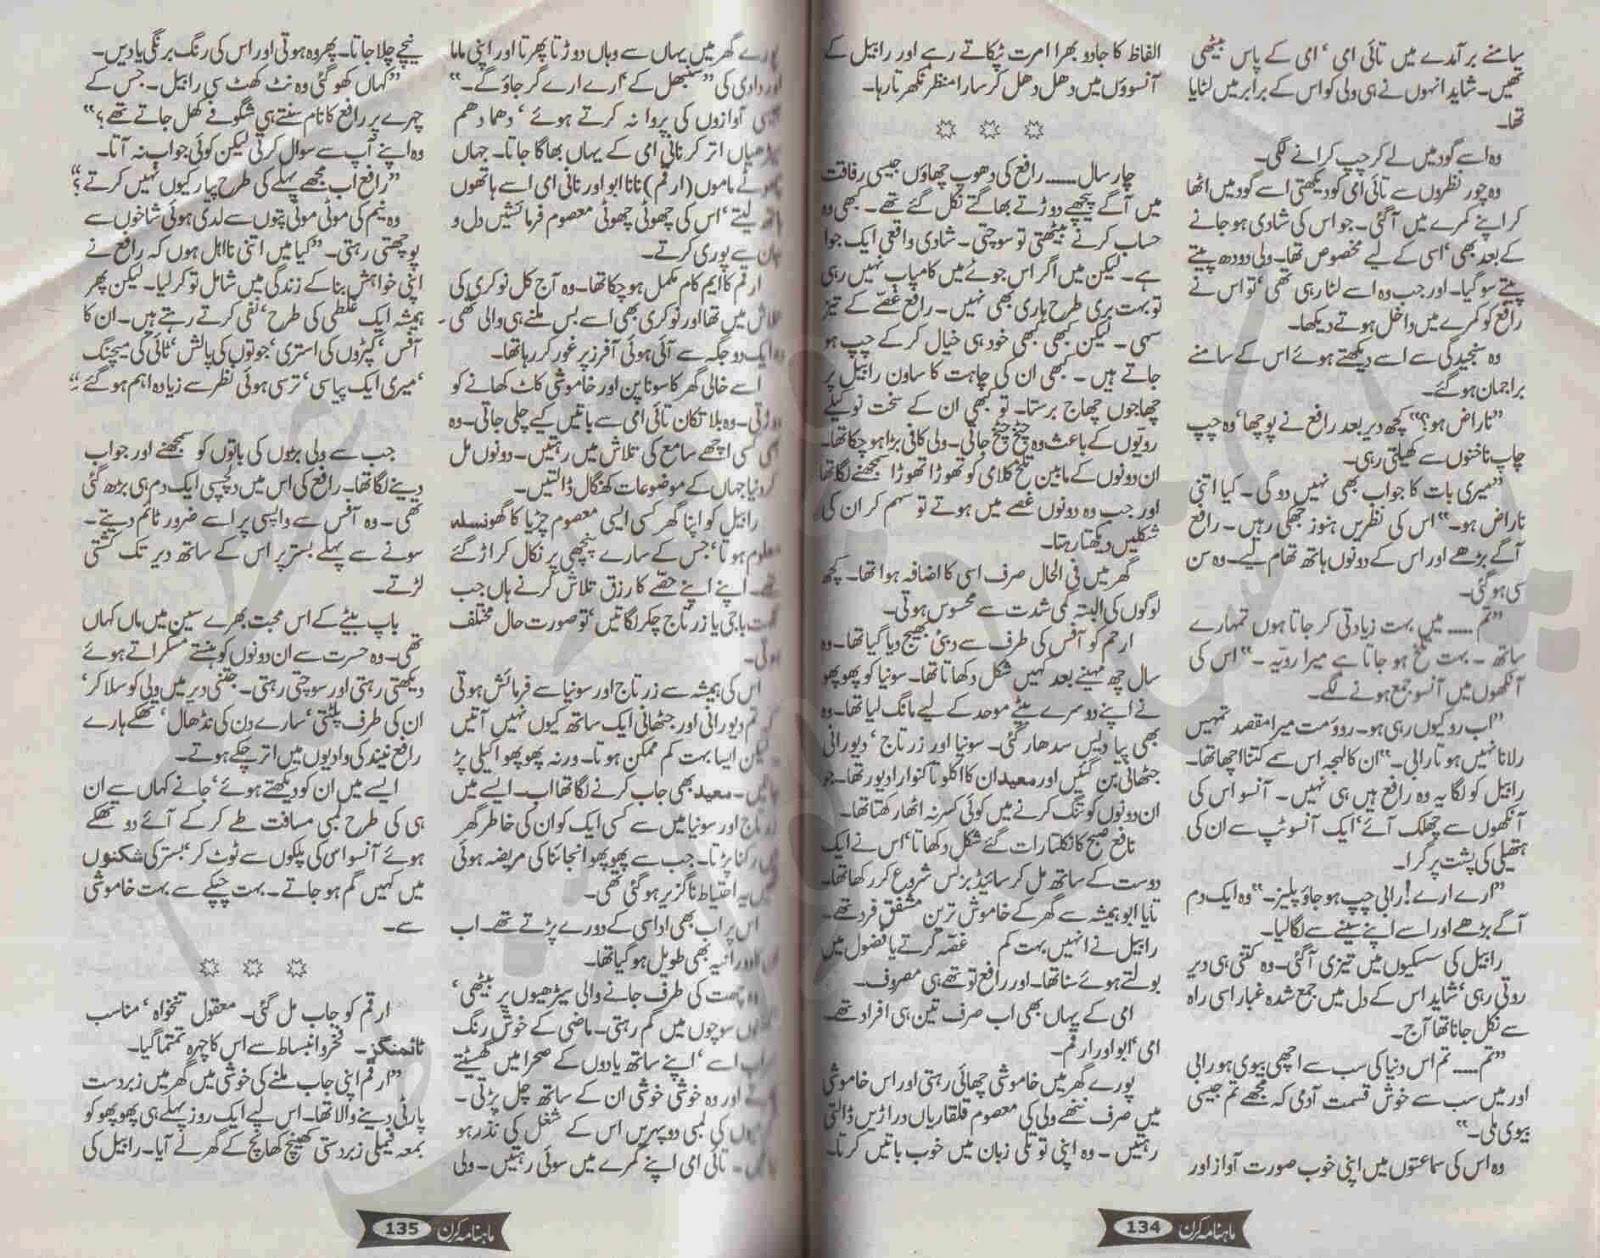 سامنے برآمدے میں تائی امی، امی کے پاس بیٹھی
تھیں۔ شاید انہوں نے ہی ولی کو اس کے برابر میں لٹایا
تھا۔
وہ اسے گود میں لے کر چپ کرانے لگی۔
وہ چور نظروں سے تائی امی کو دیکھتی اسے گود میں اٹھا
کر اپنے کمرے میں آگئی۔ جو اس کی شادی ہو جانے
کے بعد بھی، اسی کے لیے مخصوص تھا۔ ولی دودھ پیتے
پیتے سو گیا۔ اور جب وہ اسے لٹا رہی تھی، تو اس نے
رافع کو کمرے میں داخل ہوتے دیکھا۔
وہ سنجیدگی سے اسے دیکھتے ہوئے اس کے سامنے
براجمان ہو گئے۔
”ناراض ہو؟“ کچھ دیر بعد رافع نے پوچھا، وہ چپ
چاپ ناخنوں سے کھیلتی رہی۔
”میری بات کا جواب بھی نہیں دو گی۔ کیا اتنی
ناراض ہو۔“ اس کی نظریں ہنوز جھکی رہیں۔ رافع
آگے بڑھے اور اس کے دونوں ہاتھ تھام لیے۔ وہ سن
سی ہو گئی۔
”تم ..... میں بہت زیادتی کر جاتا ہوں تمہارے
ساتھ۔ بہت تلخ ہو جاتا ہے میرا رویہ۔“ اس کی
آنکھوں میں آنسو جمع ہونے لگے۔
”اب رو کیوں رہی ہو۔ روؤ مت میرا مقصد تمہیں
رلانا نہیں ہوتا رابی۔“ ان کا لہجہ اس سے کتنا اچھا تھا۔
رابیل کو لگا یہ وہ رافع ہیں ہی نہیں۔ آنسو اس کی
آنکھوں سے چھلک آئے، ایک آنسو ٹپ سے ان کی
ہتھیلی کی پشت پر گرا۔
”ارے ارے! رابی چپ ہو جاؤ پلیز۔“ وہ ایک دم
آگے بڑھے اور اسے اپنے سینے سے لگا لیا۔
رابیل کی سسکیوں میں تیزی آگئی۔ وہ کتنی ہی دیر
روتی رہی، شاید اس کے دل میں جمع شدہ غبار اسی راہ
سے نکل جانا تھا آج۔
”تم ..... تم اس دنیا کی سب سے اچھی بیوی ہو رابی
اور میں سب سے خوش قسمت آدمی کہ مجھے تم جیسی
بیوی ملی۔“
وہ اس کی سماعتوں میں اپنی خوب صورت آواز اور
الفاظ کا جادو بھرا امرت ٹپکاتے رہے اور رابیل کے
آنسوؤں میں دھل دھل کر سارا منظر نکھرتا رہا۔
چار سال ..... رافع کی دھوپ چھاؤں جیسی رفاقت
میں آگے پیچھے دوڑتے بھاگتے نکل گئے تھے۔ کبھی وہ
حساب کرنے بیٹھتی تو سوچتی۔ شادی واقعی ایک جوا
ہے۔ لیکن میں اگر اس جوئے میں کامیاب نہیں رہی
تو بہت بری طرح ہاری بھی نہیں۔ رافع غصے کے تیز
سہی۔ لیکن کبھی کبھی خود ہی خیال کر کے چپ ہو
جاتے ہیں۔ کبھی ان کی چاہت کا ساون رابیل پر
چھاجوں چھاج برستا۔ تو کبھی ان کے سخت نوکیلے
رویوں کے باعث وہ چیخ چیخ جاتی۔ ولی کافی بڑا ہو چکا تھا۔
ان دونوں کے مابین تلخ کلامی کو تھوڑا تھوڑا سمجھنے لگا تھا
اور جب وہ دونوں غصے میں ہوتے تو سہم کر ان کی
شکلیں دیکھتا رہتا۔
گھر میں فی الحال صرف اسی کا اضافہ ہوا تھا۔ کچھ
لوگوں کی البتہ کمی شدت سے محسوس ہوتی۔
ارحم کو آفس کی طرف سے دبئی بھیج دیا گیا تھا۔ وہ
سال چھ مہینے بعد کہیں شکل دکھاتا تھا۔ سونیا کو پھوپھو
نے اپنے دوسرے بیٹے موحد کے لیے مانگ لیا تھا۔ وہ
بھی پیا دیس سدھار گئی۔ سونیا اور زرتاج، دیورانی
جٹھانی بن گئیں اور معید ان کا اکلوتا کنوارا دیور تھا۔ جو
ان دونوں کو تنگ کرنے میں کوئی کسر نہ اٹھا رکھتا تھا۔
نافع صبح کا نکلتا رات گئے شکل دکھاتا، اس نے ایک
دوست کے ساتھ مل کر سائیڈ بزنس شروع کر رکھا تھا۔
تایا ابو ہمیشہ سے گھر کے خاموش ترین مشفق فرد تھے۔
رابیل نے انہیں بہت کم غصہ کرتے یا فضول میں
بولتے ہوئے سنا تھا۔ اور رافع تو تھے ہی مصروف۔
امی کے یہاں بھی اب صرف تین ہی افراد تھے۔
امی، ابو اور ارقم۔
پورے گھر میں خاموشی چھائی رہتی اور اس خاموشی
میں صرف ننھے ولی کی معصوم قلقاریاں دراڑیں ڈالتی
رہتیں۔ وہ اپنی توتلی زبان میں خوب باتیں کرتا۔
ماہنامہ کرن 134
پورے گھر میں یہاں سے وہاں دوڑتا پھرتا اور اپنی ماما
اور دادی کی ”سنبھل کے، ارے ارے گر جاؤ گے۔“
آوازوں کی پروا نہ کرتے ہوئے، دھما دھم
سیڑھیاں اتر کر نانی امی کے یہاں بھاگا جاتا۔ جہاں
ماموں (ارقم) نانا ابو اور نانی امی اسے ہاتھوں
ہاتھ لیتے، اس کی چھوٹی چھوٹی معصوم فرمائشیں دل و
جان سے پوری کرتے۔
ارقم کا ایم کام مکمل ہو چکا تھا۔ وہ آج کل نوکری کی
تلاش میں تھا اور نوکری بھی اسے بس ملنے ہی والی تھی۔
وہ ایک دو جگہ سے آئی ہوئی آفرز پر غور کر رہا تھا۔
اسے خالی گھر کا سونا پن اور خاموشی کاٹ کھانے کو
دوڑتی۔ وہ بلا تکان تائی امی سے باتیں کیے چلی جاتی۔ وہ
بھی کسی اچھے سامع کی تلاش میں رہتیں۔ دونوں مل
کر دنیا جہاں کے موضوعات کھنگال ڈالتیں۔
رابیل کو اپنا گھر کسی ایسی معصوم چڑیا کا گھونسلہ
معلوم ہوتا، جس کے سارے پنچھی پر نکال کر اڑ گئے
تھے۔ اپنے اپنے حصے کا رزق تلاش کرنے ہاں جب
باجی یا زرتاج چکر لگاتیں، تو صورت حال مختلف
ہوتی۔
اس کی ہمیشہ سے زرتاج اور سونیا سے فرمائش ہوتی
کہ تم دیورانی اور جٹھانی ایک ساتھ کیوں نہیں آتیں
لیکن ایسا بہت کم ممکن ہوتا۔ ورنہ پھوپھو اکیلی پڑ
جاتیں۔ معید بھی جاب کرنے لگا تھا اب۔ ایسے میں
زرتاج اور سونیا میں سے کسی ایک کو ان کی خاطر گھر
میں رکنا پڑتا۔ جب سے پھوپھو انجائنا کی مریضہ ہوئی
تھیں یہ احتیاط ناگزیر ہو گئی تھی۔
اس پر اب بھی اداسی کے دورے پڑتے تھے۔ اب
دورانیہ بھی طویل ہو گیا تھا۔
وہ چھت کی طرف جانے والی سیڑھیوں پر بیٹھی،
سوچوں میں گم رہتی۔ ماضی کے خوش رنگ
اسے، اپنے ساتھ یادوں کے صحرا میں گھسیٹتے
اور وہ خوشی خوشی ان کے ساتھ چل پڑتی۔
کی لمبی دوپہریں اس کے شغل کی نذر ہو
تائی امی اپنے کمرے میں سوئی رہتیں۔ ولی
نیچے چلا جاتا۔ پھر وہ ہوتی اور اس کی رنگ برنگی یادیں۔
”کہاں کھو گئی وہ نٹ کھٹ سی رابیل۔ جس کے
چہرے پر رافع کا نام سنتے ہی شگوفے کھل جاتے تھے؟“
وہ اپنے آپ سے سوال کرتی لیکن کوئی جواب نہ آتا۔
”رافع اب مجھے پہلے کی طرح پیار کیوں نہیں کرتے؟“
وہ نیم کی موٹی موٹی پتوں سے لدی ہوئی شاخوں سے
پوچھتی رہتی۔ ”کیا میں اتنی نااہل ہوں کہ رافع نے
اپنی خواہش بنا کے زندگی میں شامل تو کر لیا۔ لیکن پھر
ہمیشہ ایک غلطی کی طرح، نفی کرتے رہتے ہیں۔ ان کا
آفس، کپڑوں کی استری، جوتوں کی پالش، ٹائی کی میچنگ
میری ایک پیاسی، ترسی ہوئی نظر سے زیادہ اہم ہو گئے؟“
جب سے ولی بڑوں کی باتوں کو سمجھنے اور جواب
دینے لگا تھا۔ رافع کی اس میں دلچسپی ایک دم ہی بڑھ گئی
تھی۔ وہ آفس سے واپسی پر اسے ضرور ٹائم دیتے۔
سونے سے پہلے بستر پر اس کے ساتھ دیر تک کشتی
لڑتے۔
باپ بیٹے کے اس محبت بھرے سین میں ماں کہاں
تھی۔ وہ حسرت سے ان دونوں کو ہنستے مسکراتے ہوئے
دیکھتی رہتی اور سوچتی رہتی۔ جتنی دیر میں ولی کو سلا کر،
ان کی طرف پلٹتی، سارے دن کی نڈھال، تھکے ہارے
رافع نیند کی وادیوں میں اتر چکے ہوتے۔
ایسے میں ان کو دیکھتے ہوئے، جانے کہاں سے ان
ہی کی طرح لمبی مسافت طے کر کے آئے دو تھکے
ہوئے آنسو اس کی پلکوں سے ٹوٹ کر، بستر کی شکنوں
میں کہیں گم ہو جاتے۔ بہت چپکے سے بہت خاموشی
سے۔
ارقم کو جاب مل گئی۔ معقول تنخواہ، مناسب
ٹائمنگز۔ فخر و انبساط سے اس کا چہرہ تمتما گیا۔
”ارقم اپنی جاب ملنے کی خوشی میں گھر میں زبردست
پارٹی دینے والا تھا۔ اس لیے ایک روز پہلے ہی پھوپھو کو
بمعہ فیملی زبردستی کھینچ کھانچ کے گھر لے آیا۔ رابیل کی
ماہنامہ کرن 135